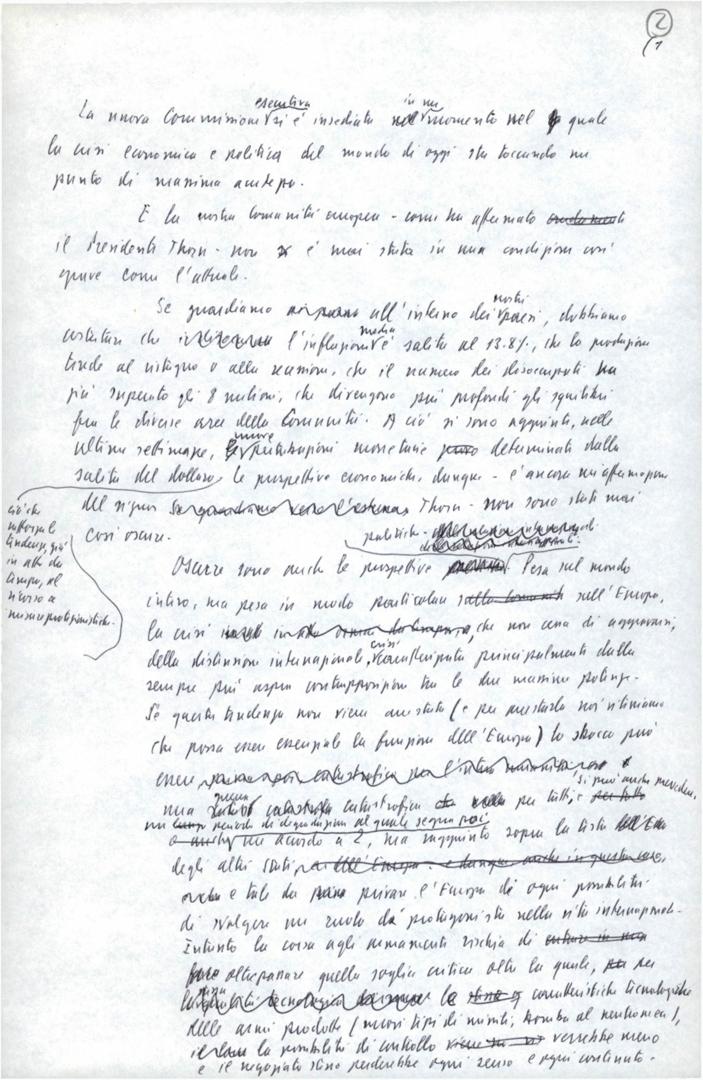 2
(1
esecutiva in un
La nuova Commissione si è insediata nel momento nel quale
la crisi economica e politica del mondo di oggi sta toccando un
punto di massima acutezza.
E la nostra Comunità europea - come ha affermato
il Presidente Thorn - non è mai stata in una condizione così
grave come l'attuale.
nostri
Se guardiamo all'interno dei paesi, dobbiamo
media
constatare che l'inflazione è salita al 13.8%, che la produzione
tende al ristagno o alla recessione, che il numero dei disoccupati ha
già superato gli 8 milioni, che divengono più profondi gli squilibri
fra le diverse aree della Comunità. A ciò si sono aggiunti, nelle
nuove
ultime settimane, le perturbazioni monetarie determinate dalla
salita del dollaro, le prospettive economiche, dunque - è ancora un'affermazione
del signor Thorn - non sono stati mai
così oscure.
ciò che
rafforza le
tendenze, già
in atto da
tempo, al
ricorso a
misure protezionistiche.
politiche -
Oscure sono anche le prospettive Pesa sul mondo
intero, ma pesa in modo particolare sull'Europa,
la crisi che non cessa di aggravarsi,
crisi
della distensione internazionale, caratterizzata principalmente dalla
sempre più aspra contrapposizione tra le due massime potenze.
Se questa tendenza non viene arrestata (e per arrestarla noi riteniamo
che possa essere essenziale la funzione dell'Europa) lo sbocco può
essere
si può anche prevedere,
guerra
una catastrofica per tutti, e
un periodo di degradazione al quale segua poi
un accordo a 2, ma raggiunto sopra la testa
degli altri stati
e tale da privare l'Europa di ogni possibilità
di svolgere un ruolo da protagonista nella vita internazionale.
Intanto la corsa agli armamenti rischia di
oltrepassare quella soglia critica oltre la quale, per
le caratteristiche tecnologiche
delle armi prodotte (nuovi tipi di missili, bomba al neutrone),
la possibilità di controllo verrebbe meno
e il negoziato stesso perderebbe ogni senso e ogni contenuto.